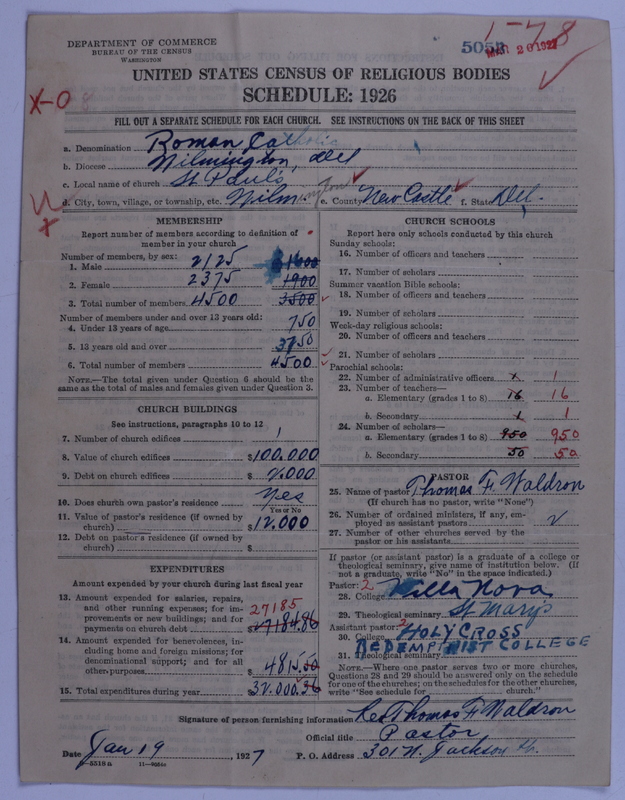 DEPARTMENT OF COMMERCE
BUREAU OF THE CENSUS
WASHINGTON
5058
MAR 26 1927
1-78
X-0 8
UNITED STATES CENSUS OF RELIGIOUS BODIES
SCHEDULE: 1926
FILL OUT A SEPARATE SCHEDULE FOR EACH CHURCH. SEE INSTRUCTIONS ON THE BACK OF THIS SHEET
a. Denomination Roman Catholic
b. Diocese Wilmington, Del
c. Local name of church St Paul's
d. City, town, village, or township, etc. Wilmington e. County New Castle f. State Del.
MEMBERSHIP
Report number of members according to definition of
member in your church
Number of members, by sex:
1. Male 2125 1600
2. Female 2375 1900
3. Total number of members 4500 3500
Number of members under and over 13 years old:
4. Under 13 years of age 750
5. 13 years old and over 3750
6. Total number of members 4500
NOTE.—The total given under Question 6 should be the
same as the total of males and females given under Question 3.
CHURCH BUILDINGS
See instructions, paragraphs 10 to 12
7. Number of church edifices 1
8. Value of church edifices $100.000
9. Debt on church edifices $2.000
10. Does church own pastor's residence Yes
Yes or No
11. Value of pastor's residence (if owned by
church) $12.000
12. Debt on pastor's residence (if owned by
church) $
EXPENDITURES
Amount expended by your church during last fiscal year
13. Amount expended for salaries, repairs,
and other running expenses; for im-
provements or new buildings; and for
payments on church debt 27185 $27184.86
14. Amount expended for benevolences, in-
cluding home and foreign missions; for
denominational support; and for all
other purposes $4815.50
15. Total expenditures during year $32.000.36
CHURCH SCHOOLS
Report here only schools conducted by this church
Sunday schools:
16. Number of officers and teachers
17. Number of scholars
Summer vacation Bible schools:
18. Number of officers and teachers
19. Number of scholars
Week-day religious schools:
20. Number of officers and teachers
21. Number of scholars
Parochial schools:
22. Number of administrative officers 1 1
23. Number of teachers—
a. Elementary (grades 1 to 8) 16 16
b. Secondary 1 1
24. Number of scholars—
a. Elementary (grades 1 to 8) 950 950
b. Secondary 50 50
PASTOR
25. Name of pastor Thomas F. Waldron
(If church has no pastor, write "None")
26. Number of ordained ministers, if any, em-
ployed as assistant pastors 2
27. Number of other churches served by the
pastor or his assistants
If pastor (or assistant pastor) is a graduate of a college or
theological seminary, give name of institution below. (If
not a graduate, write "No" in the space indicated.)
Pastor: 2
28. College Villa Nova
29. Theological seminary St Mary's
Assistant pastor: 2
30. College HOLY CROSS
REDEMPTIST COLLEGE
31. Theological seminary
NOTE.—Where one pastor serves two or more churches,
Questions 28 and 29 should be answered only on the schedule
for one of the churches; on the schedules for the other churches,
write "See schedule for church."
Signature of person furnishing information Rev Thomas F Waldron
Official title Pastor
Date Jan 19, 1927 P. O. Address 301 N. Jackson
8-5518 a 11-9664a